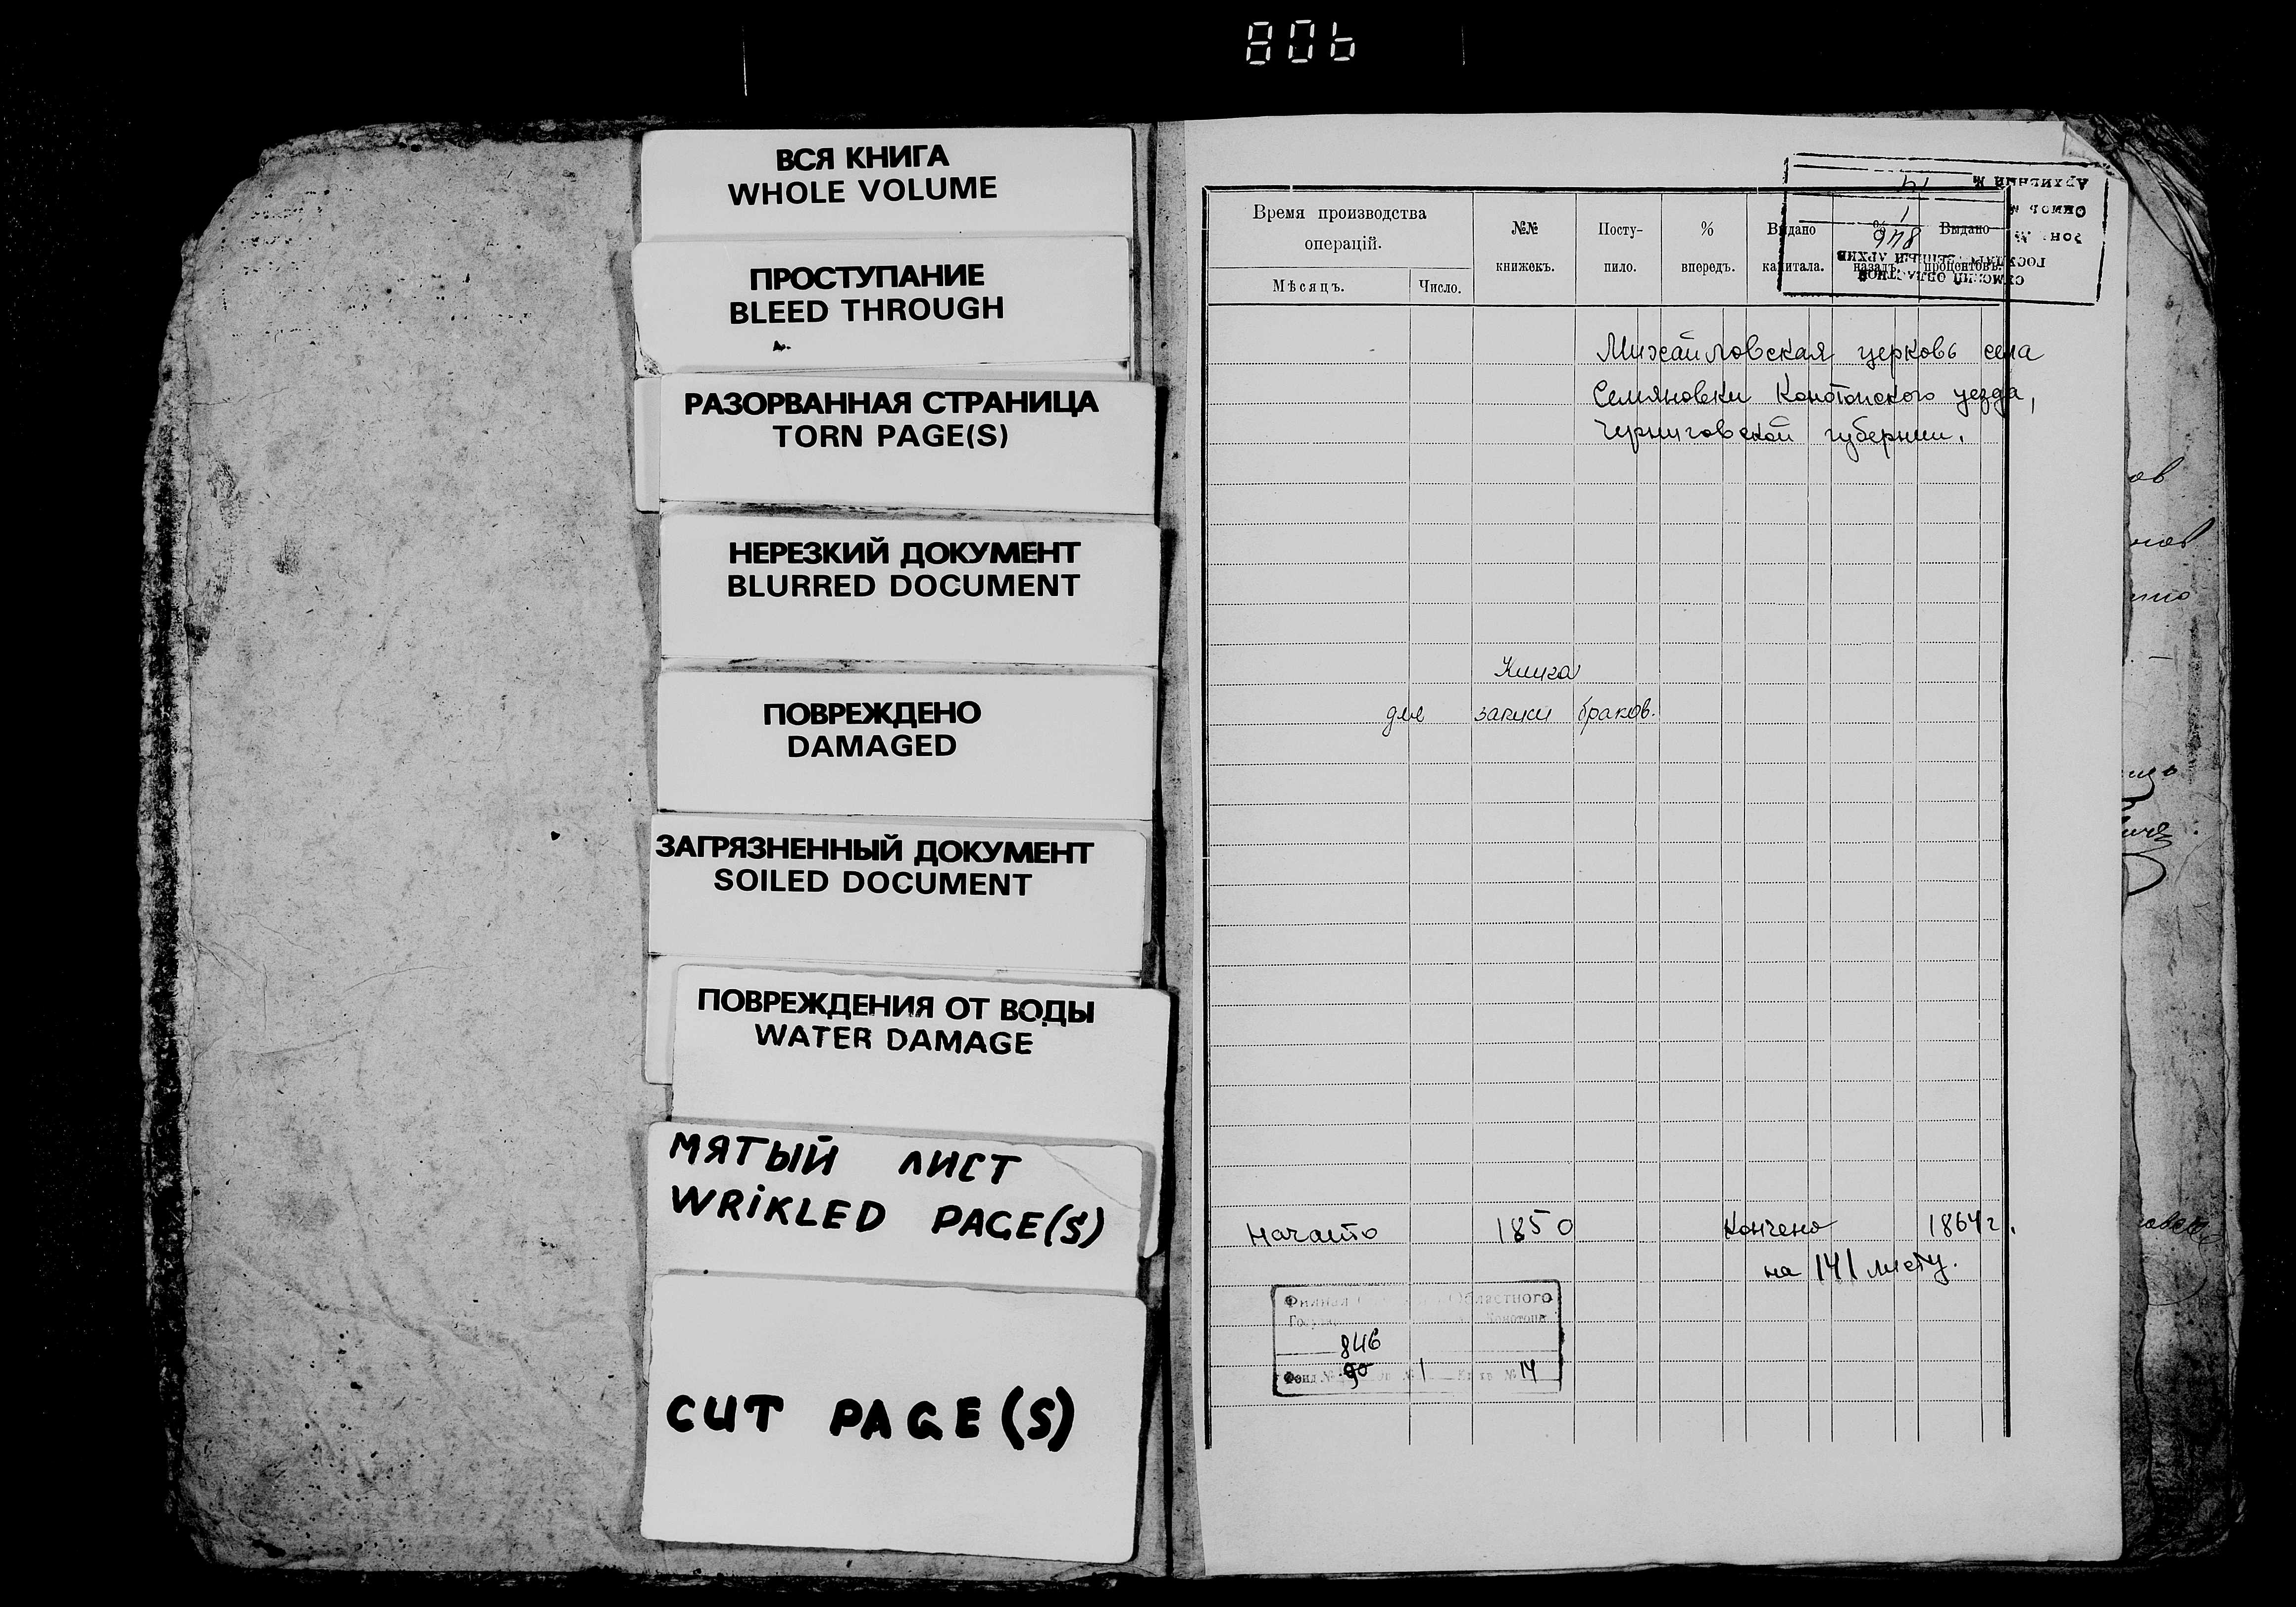 806
ВСЯ КНИГА
WHOLE VOLUME
ПРОСТУПАНИЕ
BLEED THROUGH
РАЗОРВАННАЯ СТРАНИЦА
TORN PAGE(S)
НЕРЕЗКИЙ ДОКУМЕНТ
BLURRED DOCUMENT
ПОВРЕЖДЕНО
DAMAGED
ЗАГРЯЗНЕННЫЙ ДОКУМЕНТ
SOILED DOCUMENT
ПОВРЕЖДЕНИЯ ОТ ВОДЫ
WATER DAMAGE
МЯТЫЙ ЛИСТ
WRIKLED PAGE(S)
CUT PAGE(S)
Время производства
операцій.
Мѣсяцъ.
Число.
№№
книжекъ.
Посту-
пило.
%
впередъ.
Выдано
капитала.
%
назадъ.
Выдано
процентовъ.
АРХИВНЫЙ № 14
1
846
Михайловская церковь села
Семяновки Конотопского уезда,
Черниговской губернии.
Книга
для записи браков.
Начато 1850 Кончено 1864 г.
на 141 листу.
Филиал Областного
846
Фонд № 90 1 14